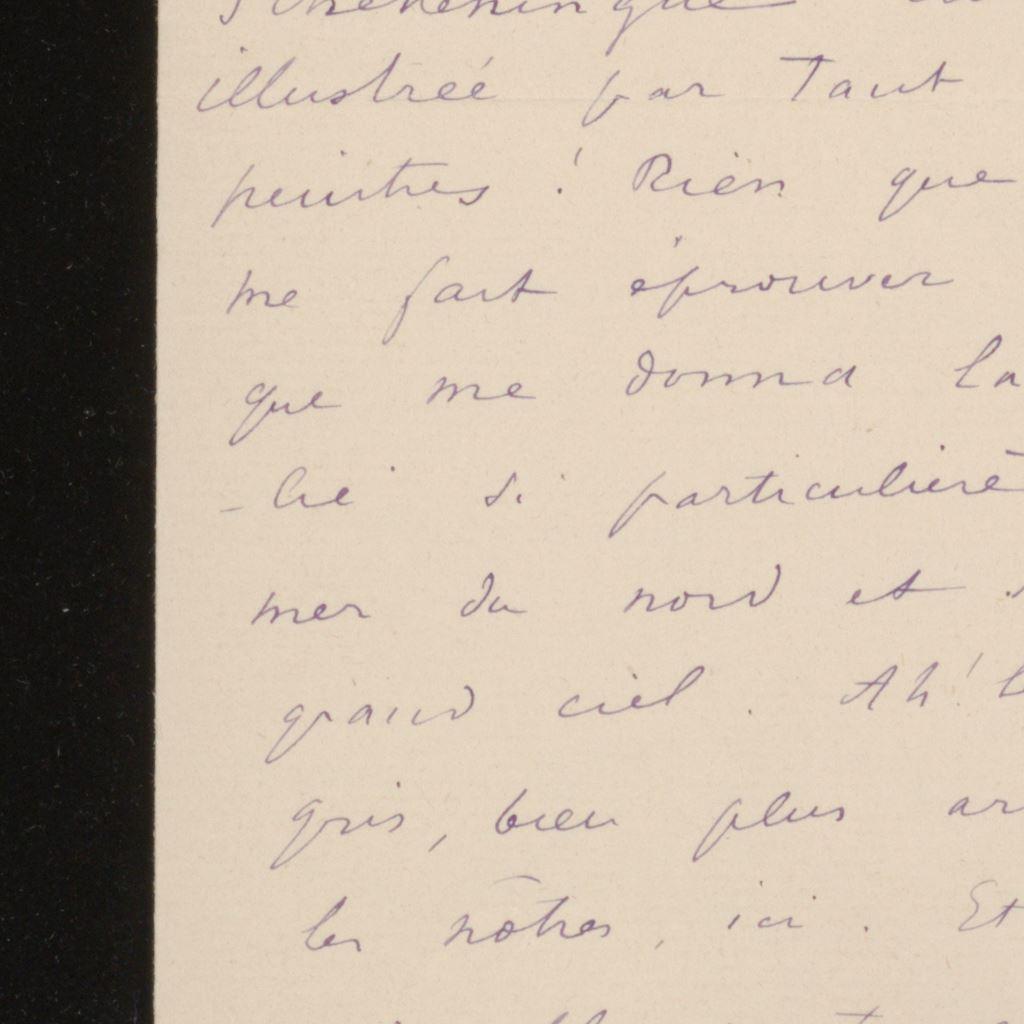 Scheveningue
illustrée par Tant
peintres ! Rien que
me fait éprouver
que me donna la
- lie si particulière
mer du nord et
grand ciel. Ah! l
gris, bien plus ar
les nôtres, ici. Et